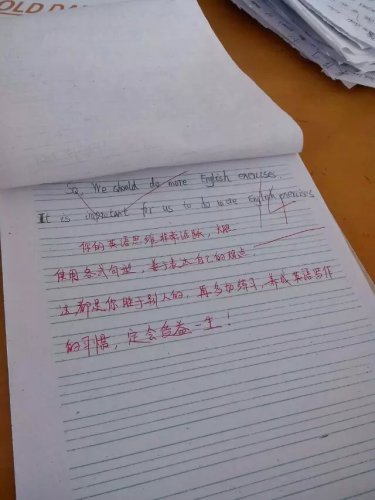 OLD
So, We should do more English exercises.
It is important for us to do more English exercises
14
你的英语思维非常活跃, 大胆
使用各式句型, 善于表达自己的观点.
这都是你胜于别人的, 再多加练习, 养成英语写作
的习惯, 定会受益一生!